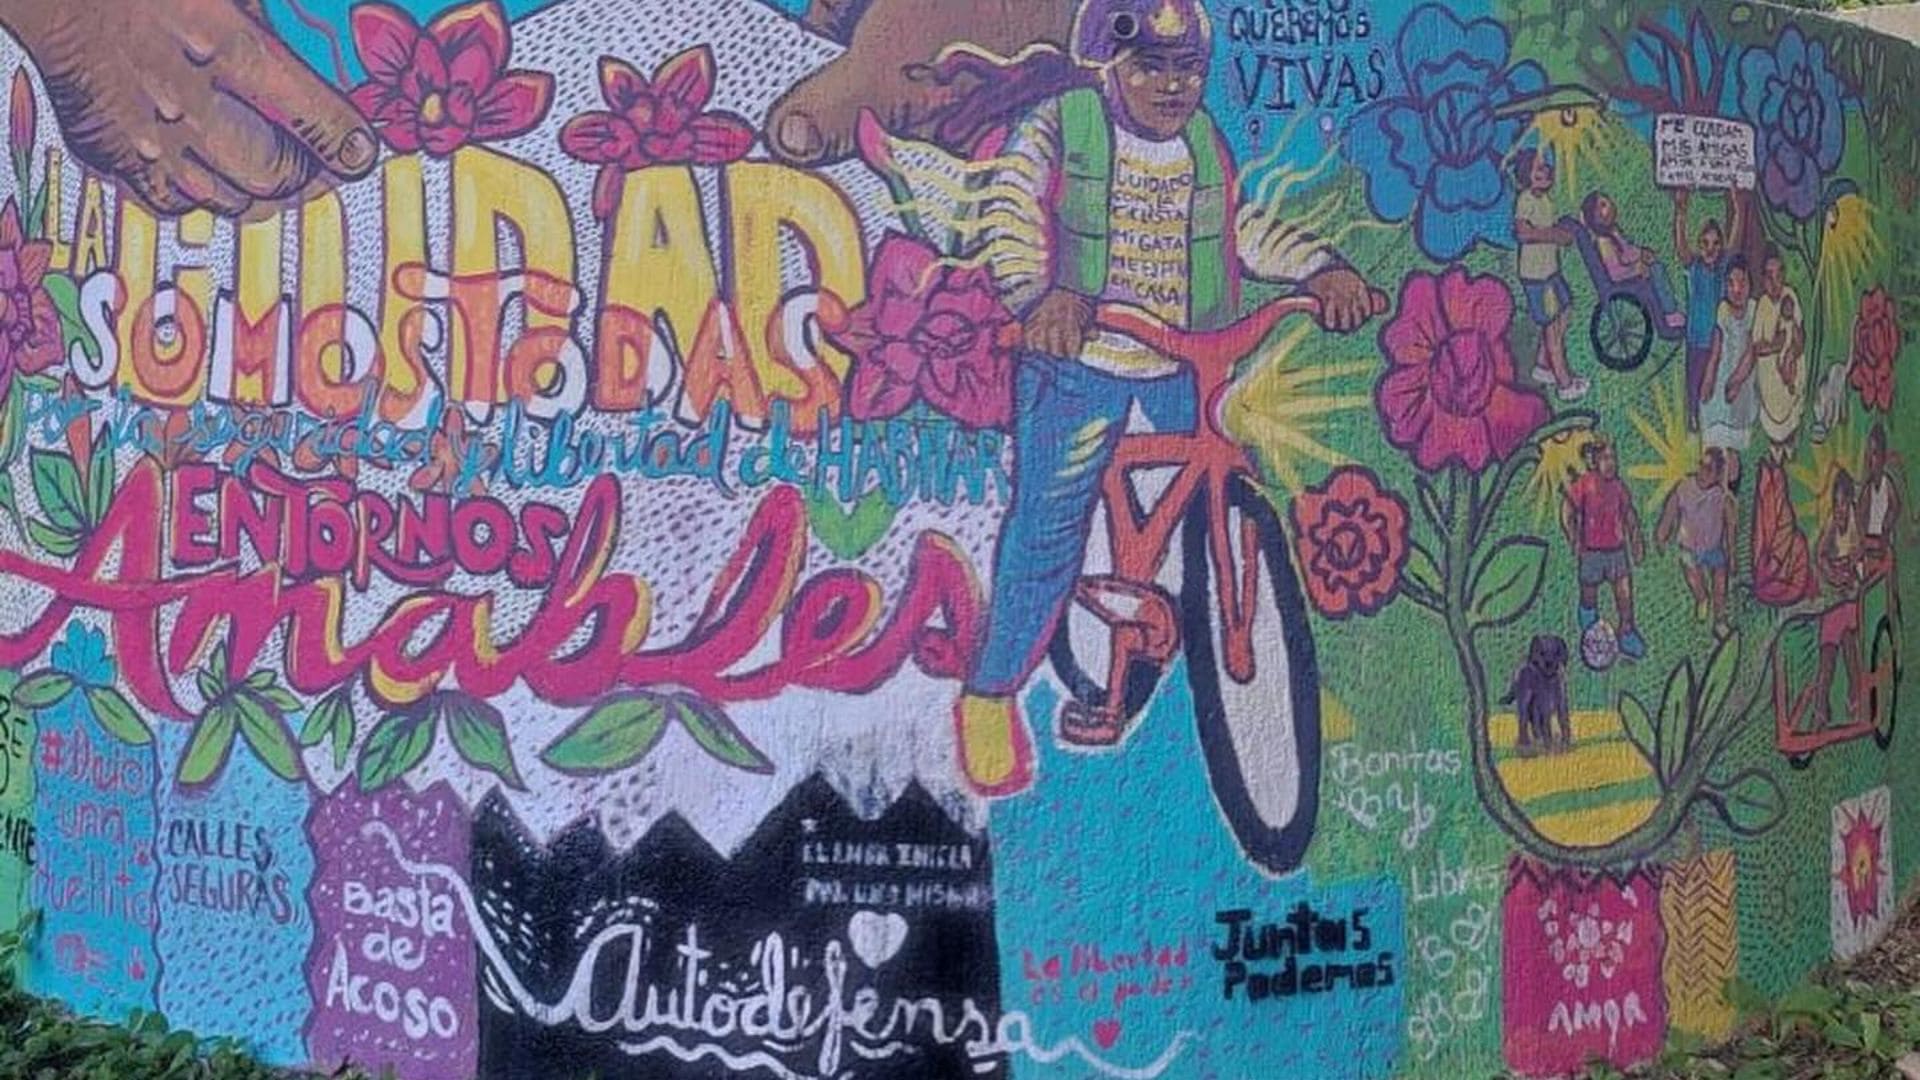 LA CIUDAD
SOMOS TODAS
Por la seguridad y libertad de HABITAR
ENTORNOS
Amables
QUEREMOS
VIVAS
CUIDADO
CON LA
CICLISTA
MI GATA
ME ESPERA
EN CASA
ME CUIDAN
MIS AMIGAS
CALLES
SEGURAS
Basta
de
Acoso
EL AMOR INICIA
POR UNA MISMA
Autodefensa
La libertad
es el poder
Juntas
Podemos
Bonitas
Libres
AMOR